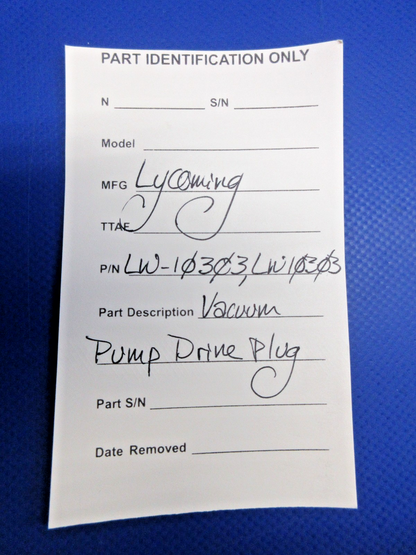 PART IDENTIFICATION ONLY
N ____________ S/N ____________
Model ____________
MFG Lycoming
TTAF ____________
P/N LW-1Ø3Ø3, LW1Ø3Ø3
Part Description Vacuum
Pump Drive Plug
Part S/N ____________
Date Removed ____________